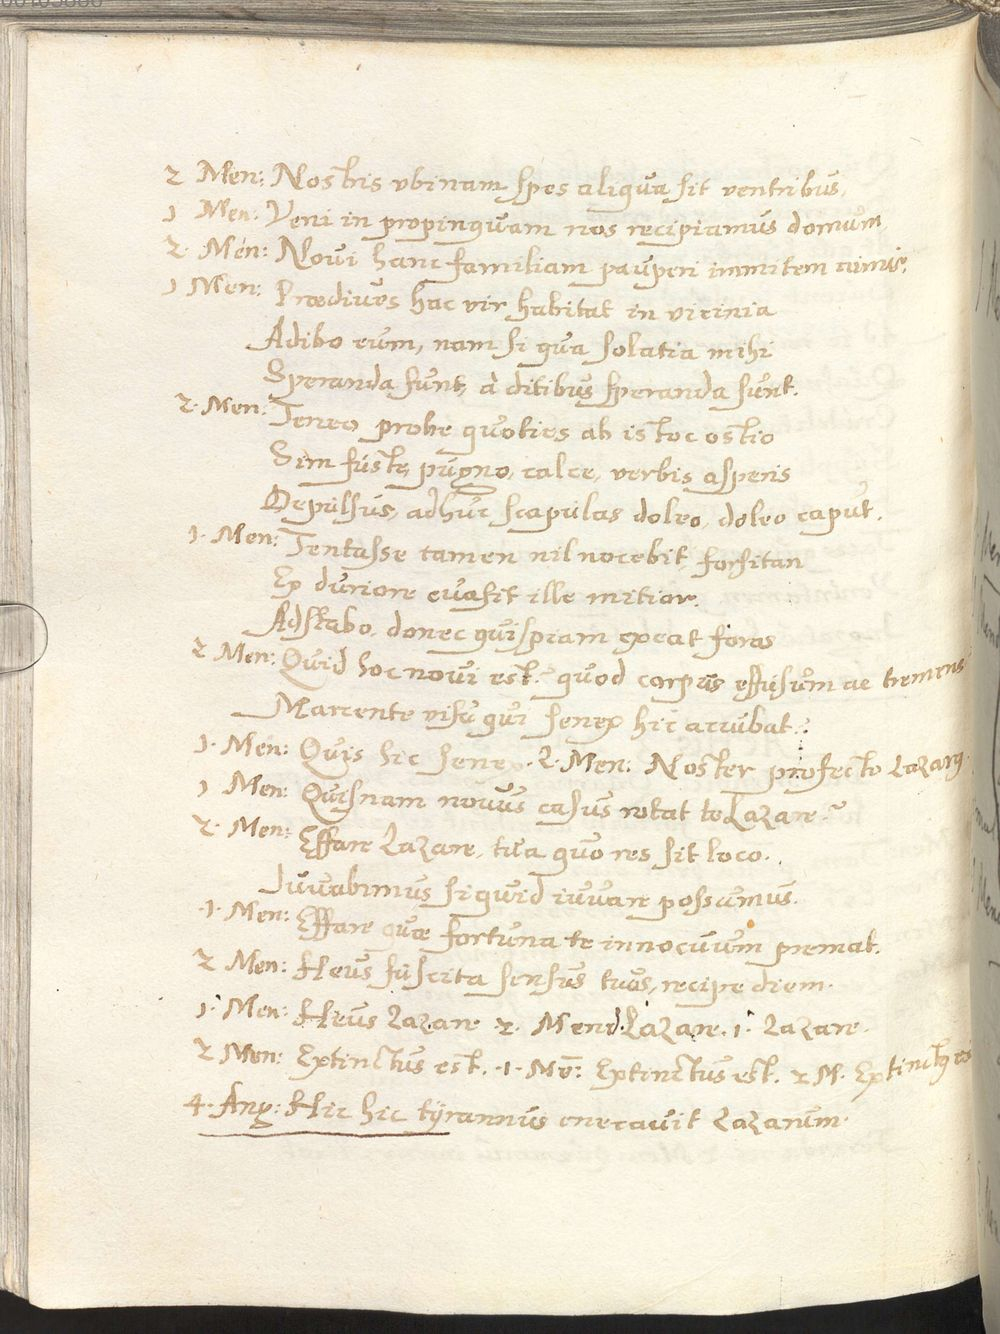 2 Men: Nostris ubinam spes aliqua sit ventribus,
1 Men: Veni in propinquam nos recipiamus domum
2. Men: Novi hanc familiam pauperi immitem nimis,
1 Men: Prædives hac vir habitat in vicinia
Adibo eum, nam si qua solatia mihi
Speranda sunt, à ditibus speranda sunt.
2. Men: Teneo probe quoties ab istoc ostio
Sim fuste, pugno, calce, verbis asperis
Depulsus, adhuc scapulas doleo, doleo caput.
1. Men: Tentasse tamen nil nocebit, forsitan
Ex duriore evasit ille mitior.
Adstabo, donec quispiam exeat foras
2 Men: Quid hoc novi est? quod corpus effusum ac tremens
Marcente visu qui senex hic accubat?
1. Men: Quis hic senex. 2. Men: Noster profecto Lazarus.
1 Men: Quisnam novus casus rotat te Lazare?
2. Men: Effare Lazare, tua quo res sit loco.
Juvabimus siquid iuvare possumus.
1. Men: Effare quæ fortuna te innocuum premat.
2 Men: Heus suscita sensus tuos, recipe diem.
1. Men: Heus Lazare 2. Mend. Lazare. 1. Lazare.
2 Men: Extinctus est. 1. Men: Extinctus est. 2 M. Extinctus
4. Ang: Hic hic tyrannus enecavit Lazarum.